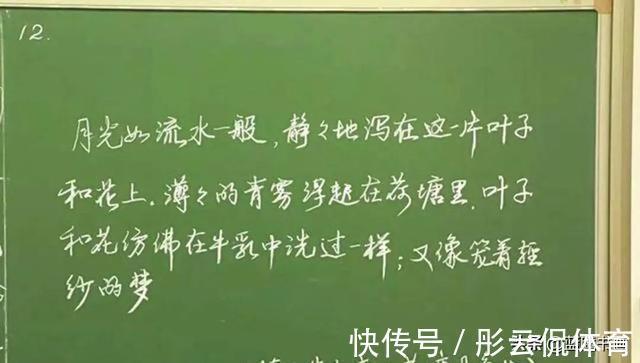 12.
月光如流水一般，静々地泻在这一片叶子
和花上。薄々的青雾浮起在荷塘里。叶子
和花仿佛在牛乳中洗过一样；又像笼着轻
纱的梦
快传号／彤云侃体育